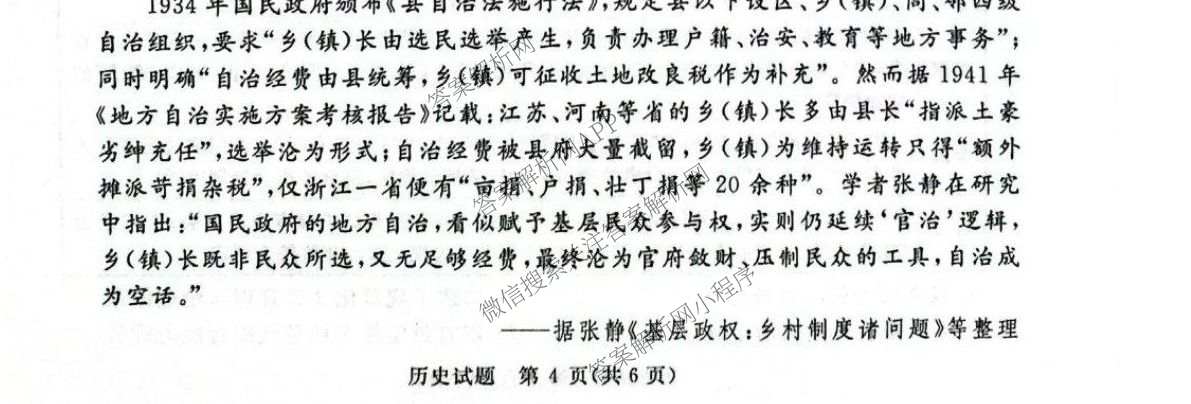 1934年国民政府颁布《县自治法施行法》,规定县以下设区、乡(镇)、闾、邻四级
自治组织,要求“乡(镇)长由选民选举产生,负责办理户籍、治安、教育等地方事务”;
同时明确“自治经费由县统筹,乡(镇)可征收土地改良税作为补充”。然而据1941年
《地方自治实施方案考核报告》记载:江苏、河南等省的乡(镇)长多由县长“指派土豪
劣绅充任”,选举沦为形式;自治经费被县府大量截留,乡(镇)为维持运转只得“额外
摊派苛捐杂税”,仅浙江一省便有“亩捐、户捐、壮丁捐等20余种”。学者张静在研究
中指出:“国民政府的地方自治,看似赋予基层民众参与权,实则仍延续‘官治’逻辑,
乡(镇)长既非民众所选,又无足够经费,最终沦为官府敛财、压制民众的工具,自治成
为空话。”
——据张静《基层政权:乡村制度诸问题》等整理
历史试题 第4页(共6页)
答案解析网
答案解析网APP
微信搜索关注答案解析网
答案解析网小程序